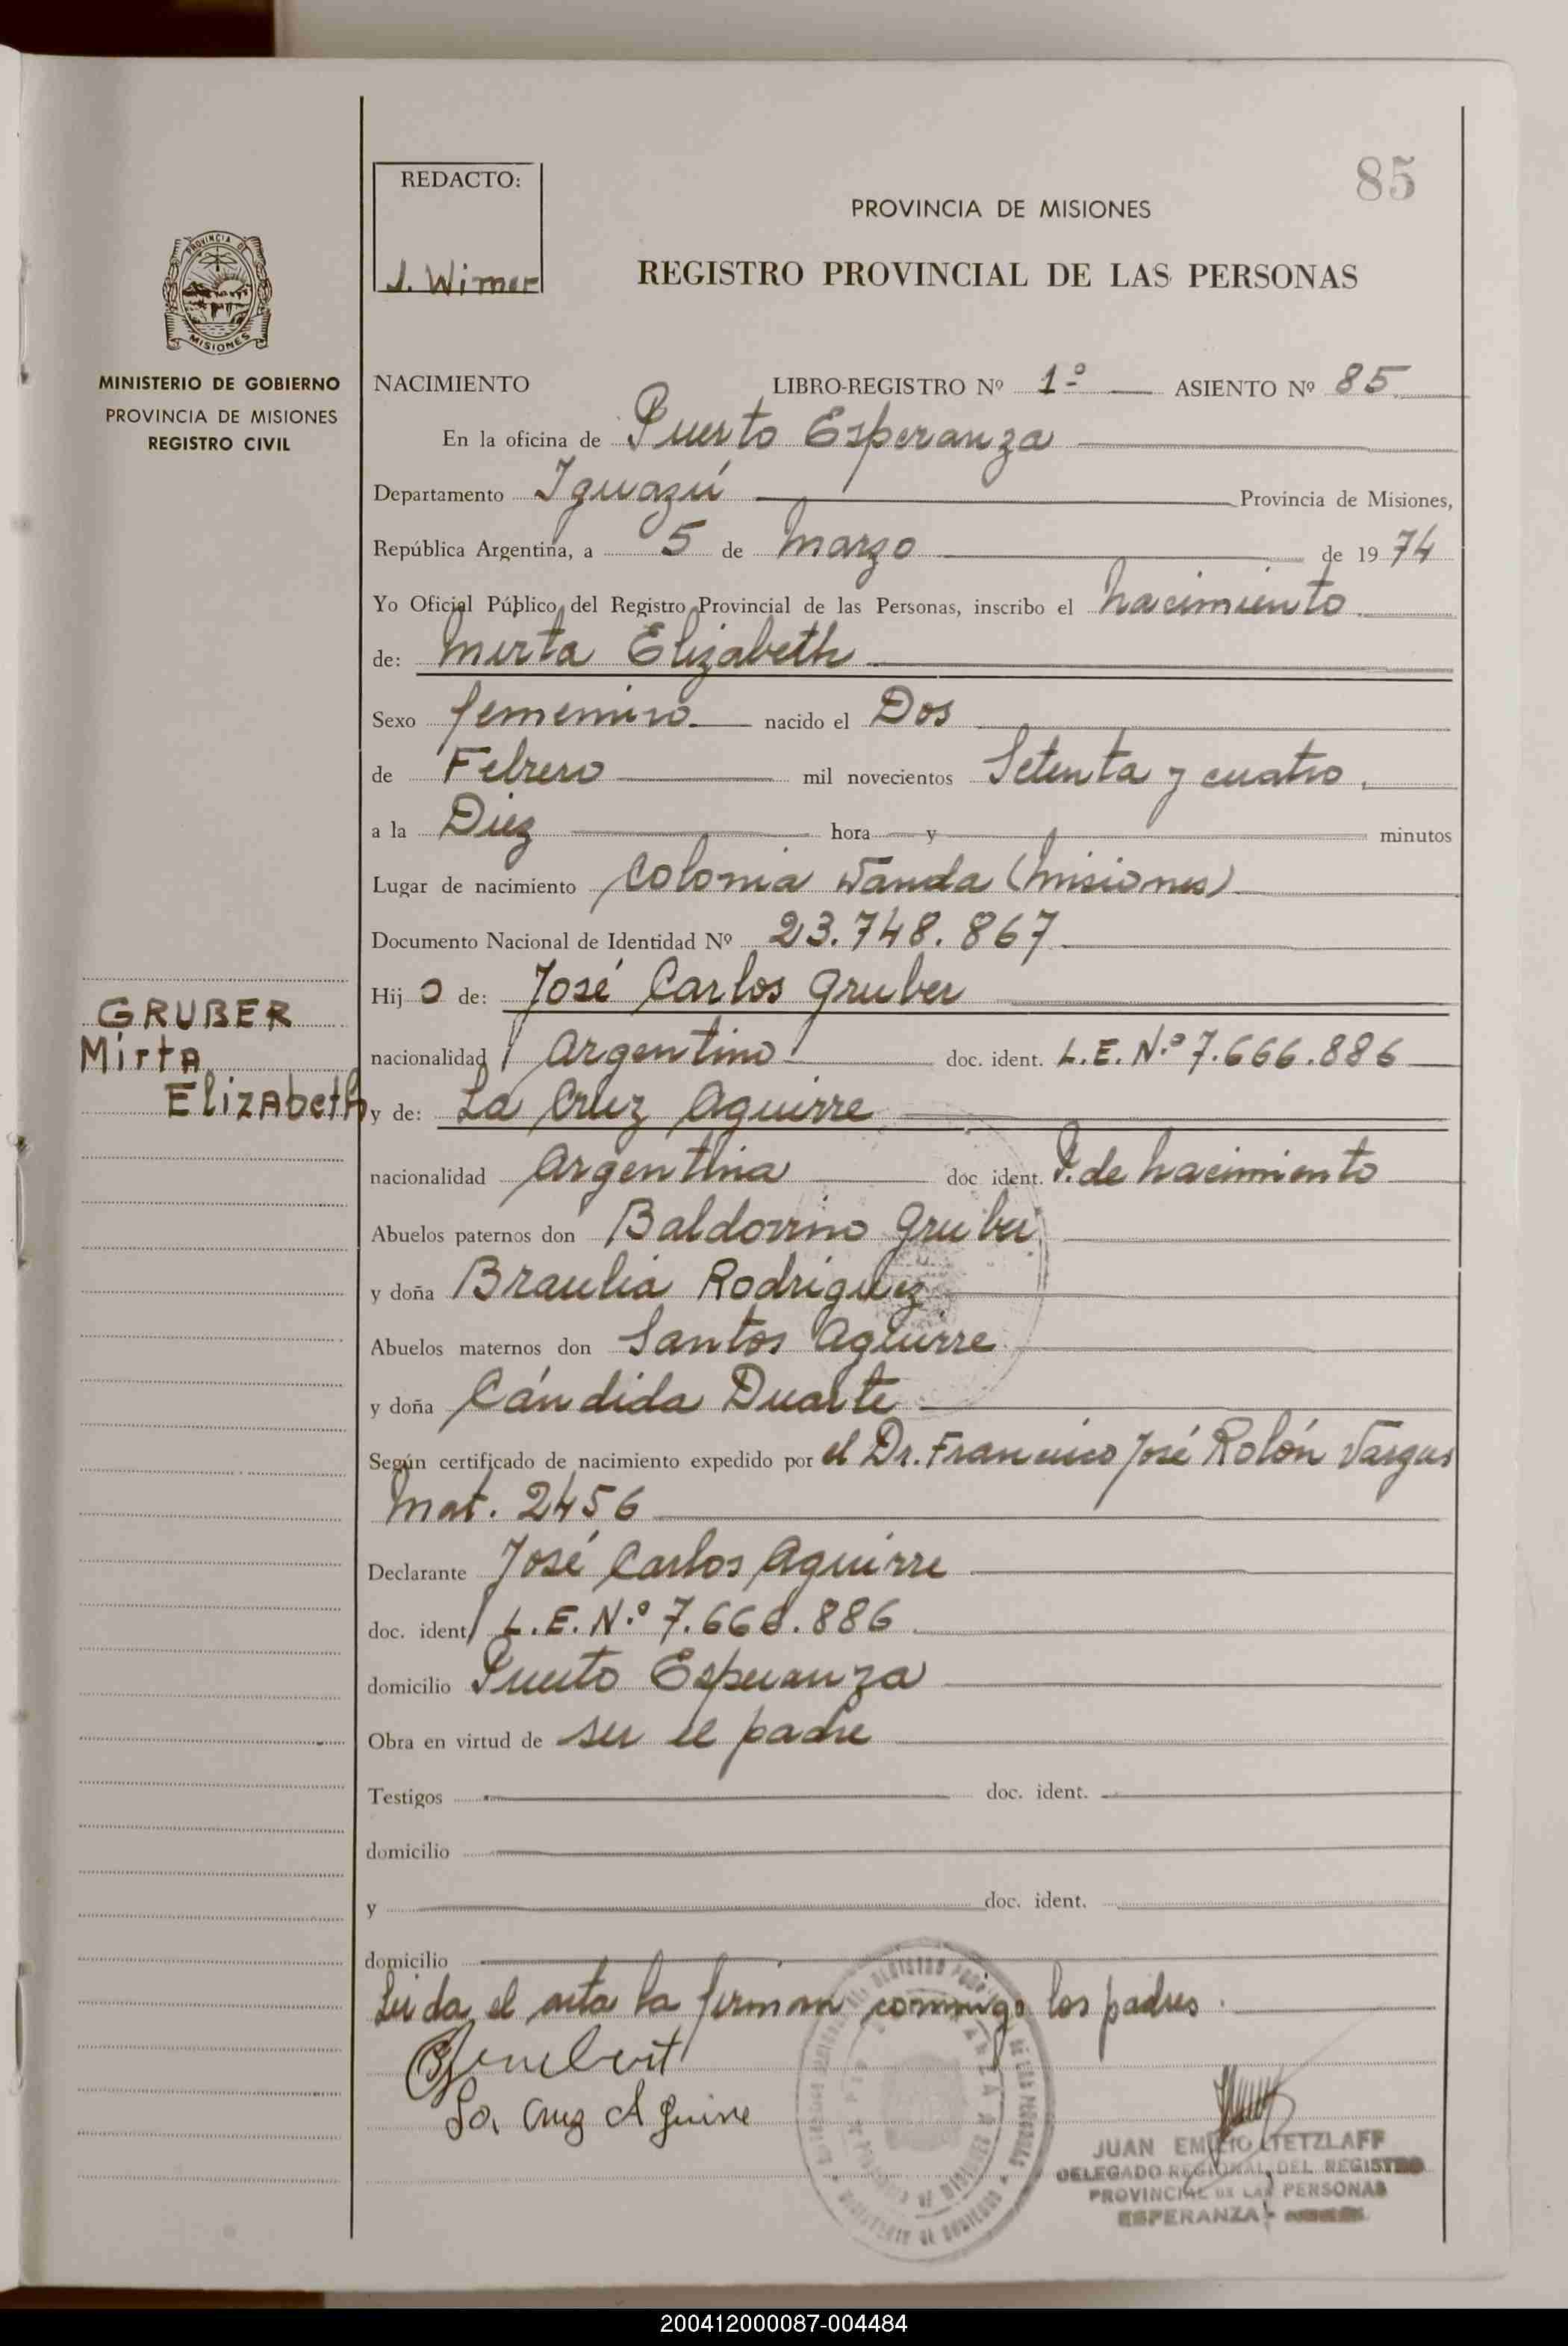 85
REDACTO:
J. Wimer
PROVINCIA DE MISIONES
REGISTRO PROVINCIAL DE LAS PERSONAS
PROVINCIA DE
MISIONES
MINISTERIO DE GOBIERNO
PROVINCIA DE MISIONES
REGISTRO CIVIL
NACIMIENTO LIBRO-REGISTRO Nº 1º ASIENTO Nº 85
En la oficina de Puerto Esperanza
Departamento Iguazú Provincia de Misiones,
República Argentina, a 5 de Marzo de 1974
Yo Oficial Público del Registro Provincial de las Personas, inscribo el nacimiento
de: Mirta Elizabeth
Sexo femenino nacido el Dos
de Febrero mil novecientos Setenta y cuatro.
a la Diez hora y minutos
Lugar de nacimiento Colonia Wanda (Misiones)
Documento Nacional de Identidad Nº 23.748.867
Hijo de: José Carlos Gruber
GRUBER
Mirta
Elizabeth
nacionalidad Argentino doc. ident. L.E. N.º 7.666.886
y de: La Cruz Aguirre
nacionalidad Argentina doc. ident. P. de nacimiento
Abuelos paternos don Baldovino Gruber
y doña Braulia Rodriguez
Abuelos maternos don Santos Aguirre
y doña Cándida Duarte
Según certificado de nacimiento expedido por el Dr. Francisco José Rolón Vargas
Mat. 2456
Declarante José Carlos Aguirre
doc. ident. L.E. N.º 7.666.886
domicilio Puerto Esperanza
Obra en virtud de ser el padre
Testigos doc. ident.
domicilio
y doc. ident.
domicilio
Leida el acta la firman conmigo los padres.
La Cruz Aguirre
JUAN EMILIO TETZLAFF
DELEGADO REGIONAL DEL REGISTRO
PROVINCIAL DE LAS PERSONAS
ESPERANZA
200412000087-004484